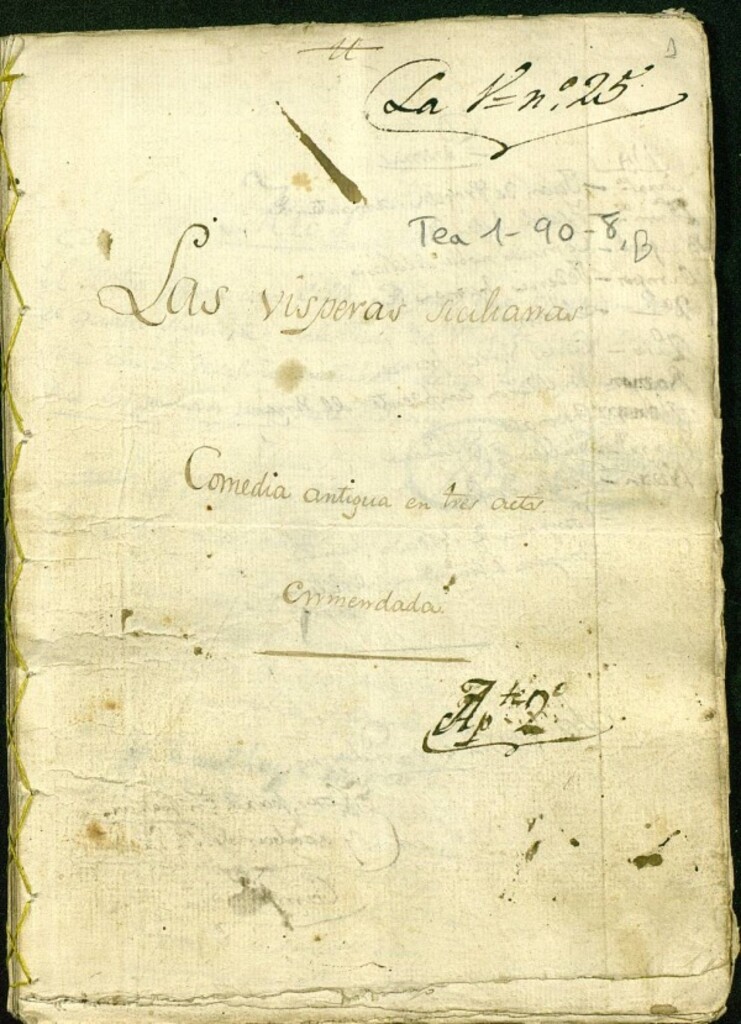 La V= nº 25
Tea 1-90-8, B
Las visperas sicilianas
Comedia antigua en tres actos
enmendada
Ap.te 2º